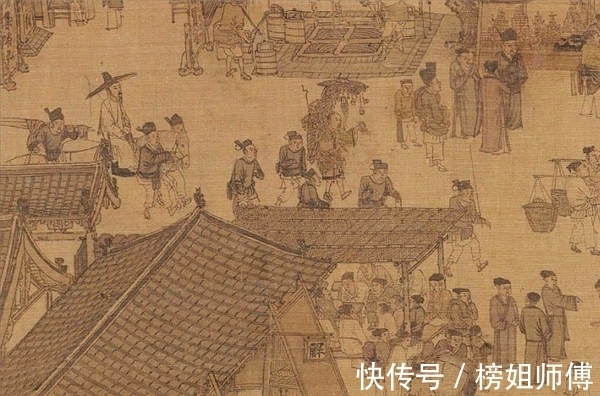 解
快传号 / 榜姐师傅